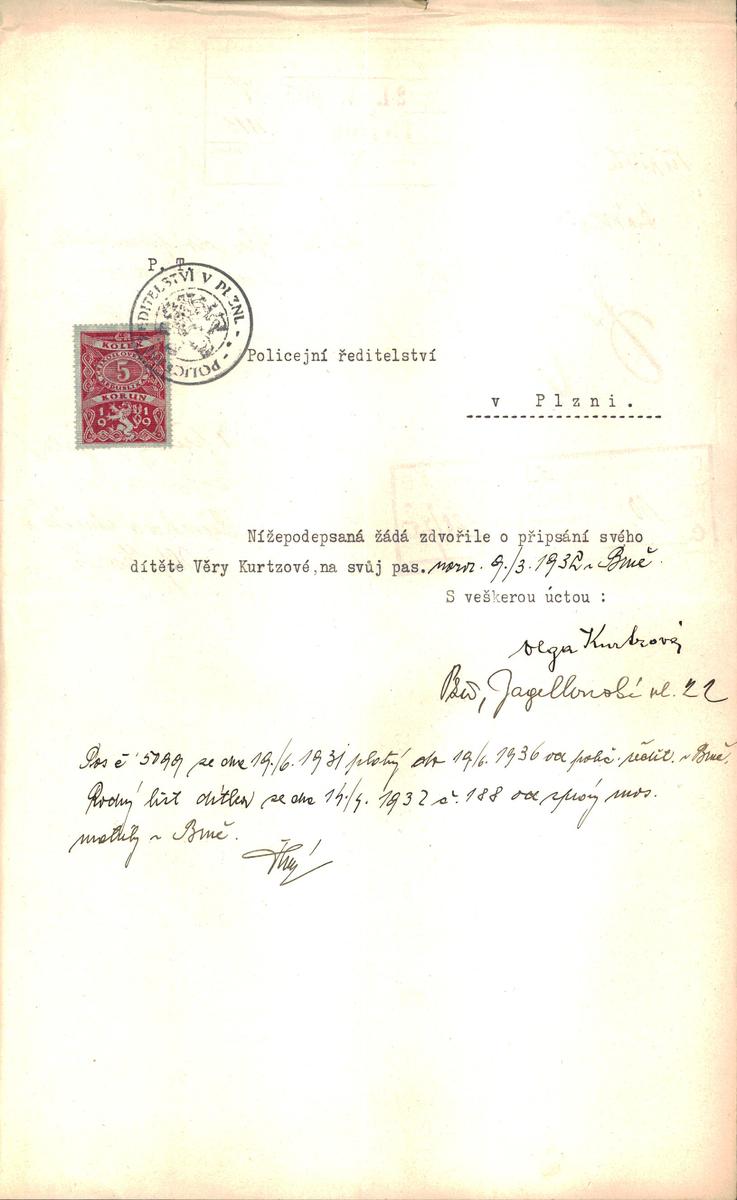 P. T.
POLICEJNÍ ŘEDITELSTVÍ V PLZNI
KOLEK
5
KORUN
1919
Policejní ředitelství
v Plzni.
Nížepodepsaná žádá zdvořile o připsání svého
dítěte Věry Kurtzové,na svůj pas. naroz. 9./3. 1932 v Brně.
S veškerou úctou :
Olga Kurtzová
Jagellonská ul. 22
Pas č 5099 ze dne 19./6. 1931 platný do 19/6. 1936 od polic. ředit. v Brně.
Rodný list dítka ze dne 14./4. 1932 č. 188 od správy
matriky v Brně.